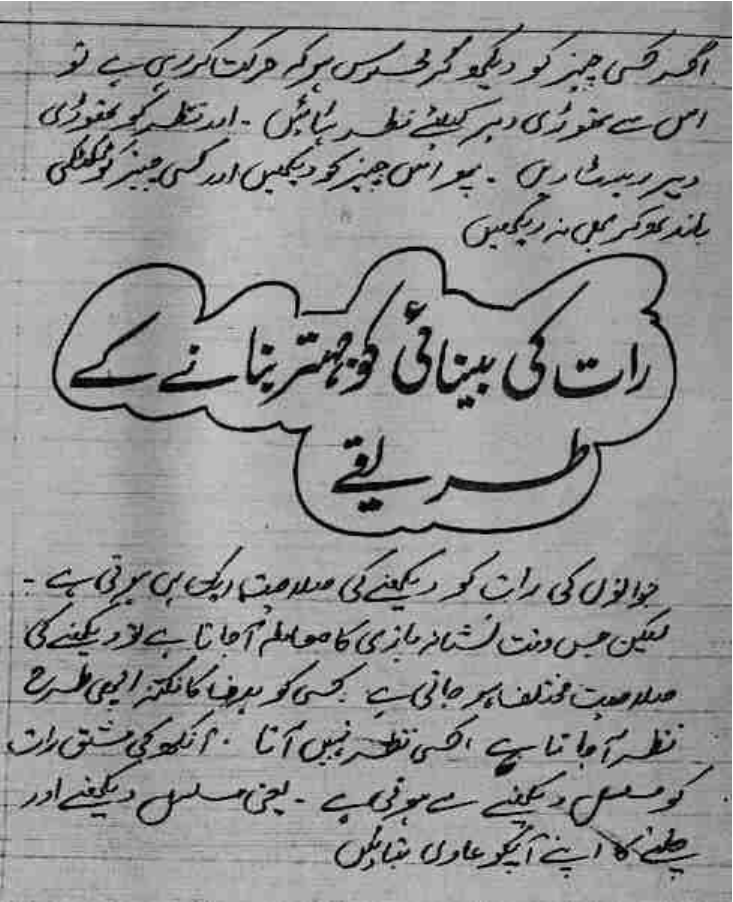 اگر کسی چیز کو دیکھو گر محسوس ہو کہ حرکت کر رہی ہے تو
اس سے تھوڑی دیر کیلئے نظر ہٹائیں ۔ اور نظر کو تھوڑی
دیر ۔ پھر اس چیز کو دیکھیں اور کسی چیز کو ٹکٹکی
باندھ کر بھی نہ دیکھیں
رات کی بینائی کو بہتر بنانے کے
طریقے
جوانوں کی رات کو دیکھنے کی صلاحیت ایک ہی ہوتی ہے ۔
لیکن جس وقت نشانہ بازی کا معاملہ آجاتا ہے تو دیکھنے کی
صلاحیت مختلف ہو جاتی ہے کسی کو اچھی طرح
نظر آ جاتا ہے اکسی نظر نہیں آتا ۔ آنکھ کی مشق رات
کو مسلسل دیکھنے سے ہوتی ہے ۔ یعنی مسلسل دیکھنے اور
چلنے کا اپنے آپکو عادی بنائیں